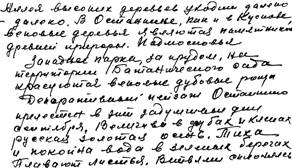 Аллея высоких деревьев уходит далеко
- далеко. В Останкине, как и в Кускове,
вековые деревья являются памятниками
древней природы. Подмосковья
Западнее парка, за прудом, на
территории Ботанического сада
красуются вековые дубовые рощи
Декоративный пейзаж Останкино
прелестен в эти задумчивые дни
сентября. Вспыхнула в дубах и кленах
русская золотая осень. Тиха
и покойна вода в зеленых берегах
Плавают листья. Ветвями склонились